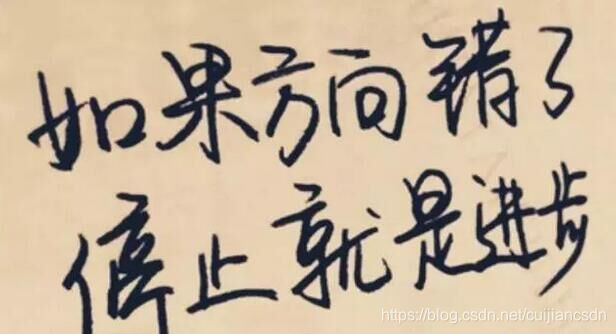 如果方向错了
停止就是进步
https://blog.csdn.net/cuijiancsdn